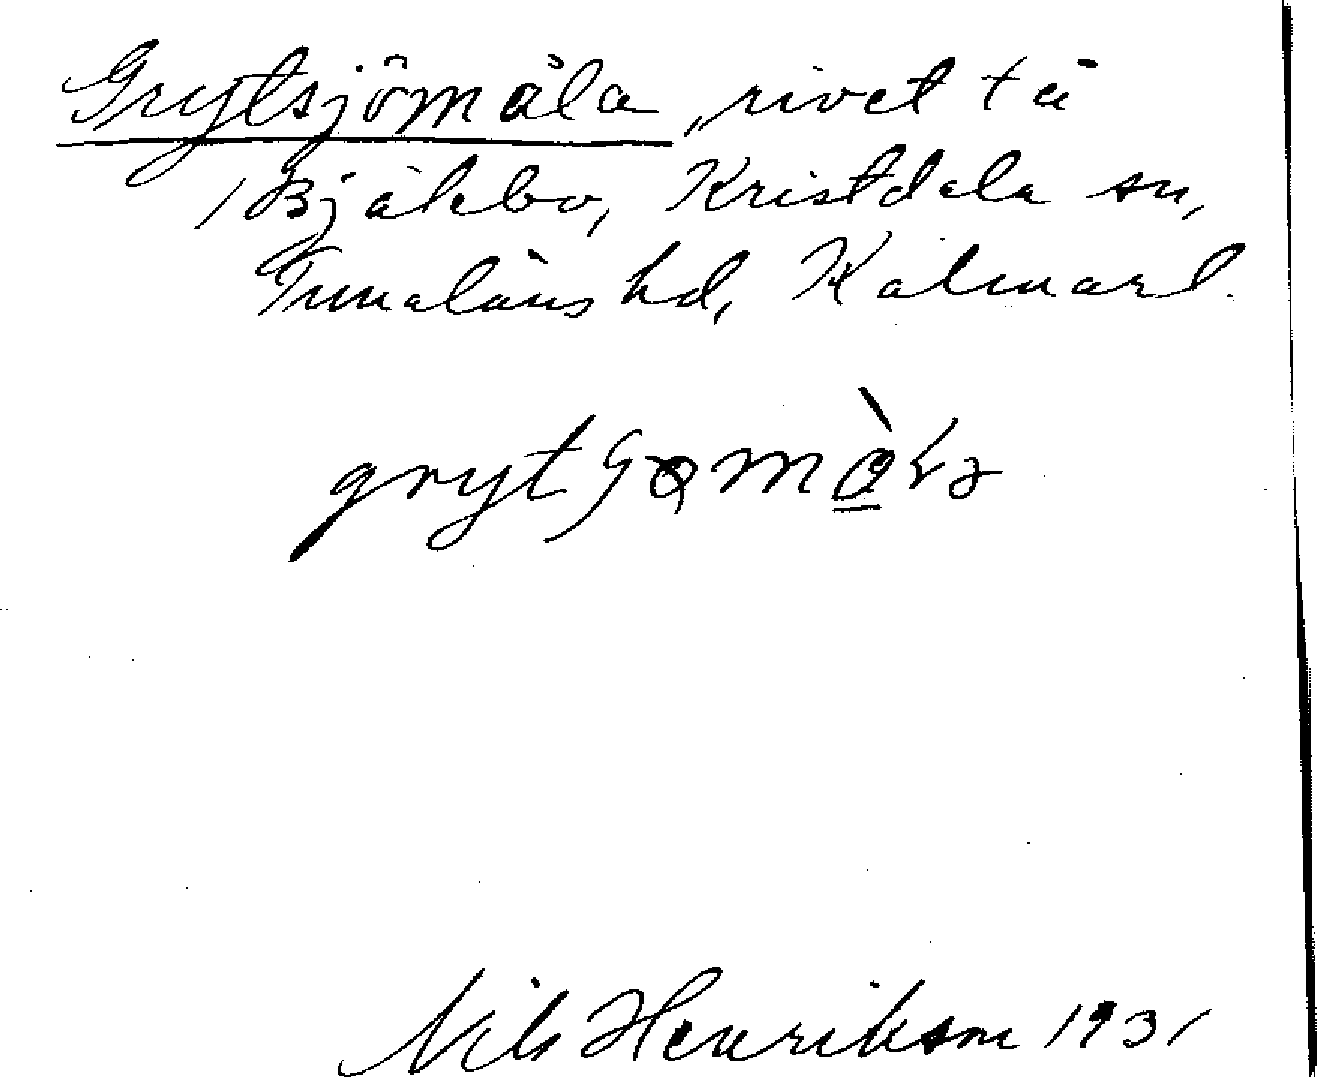 Grytsjömåla, rivet tä
, Bjälebo, Kristdala sn,
Tunaläns hd, Kalmar l.
Nils Henrikson 1931